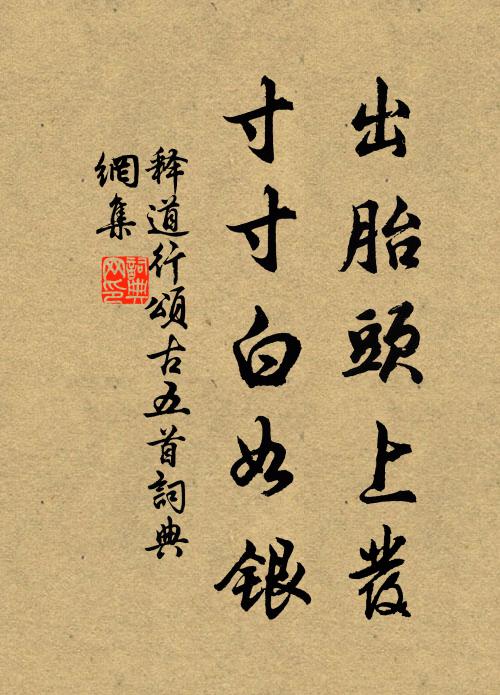 出胎頭上髮
寸寸白如銀
释道行頌古五首詞典
網集
詞典
网印